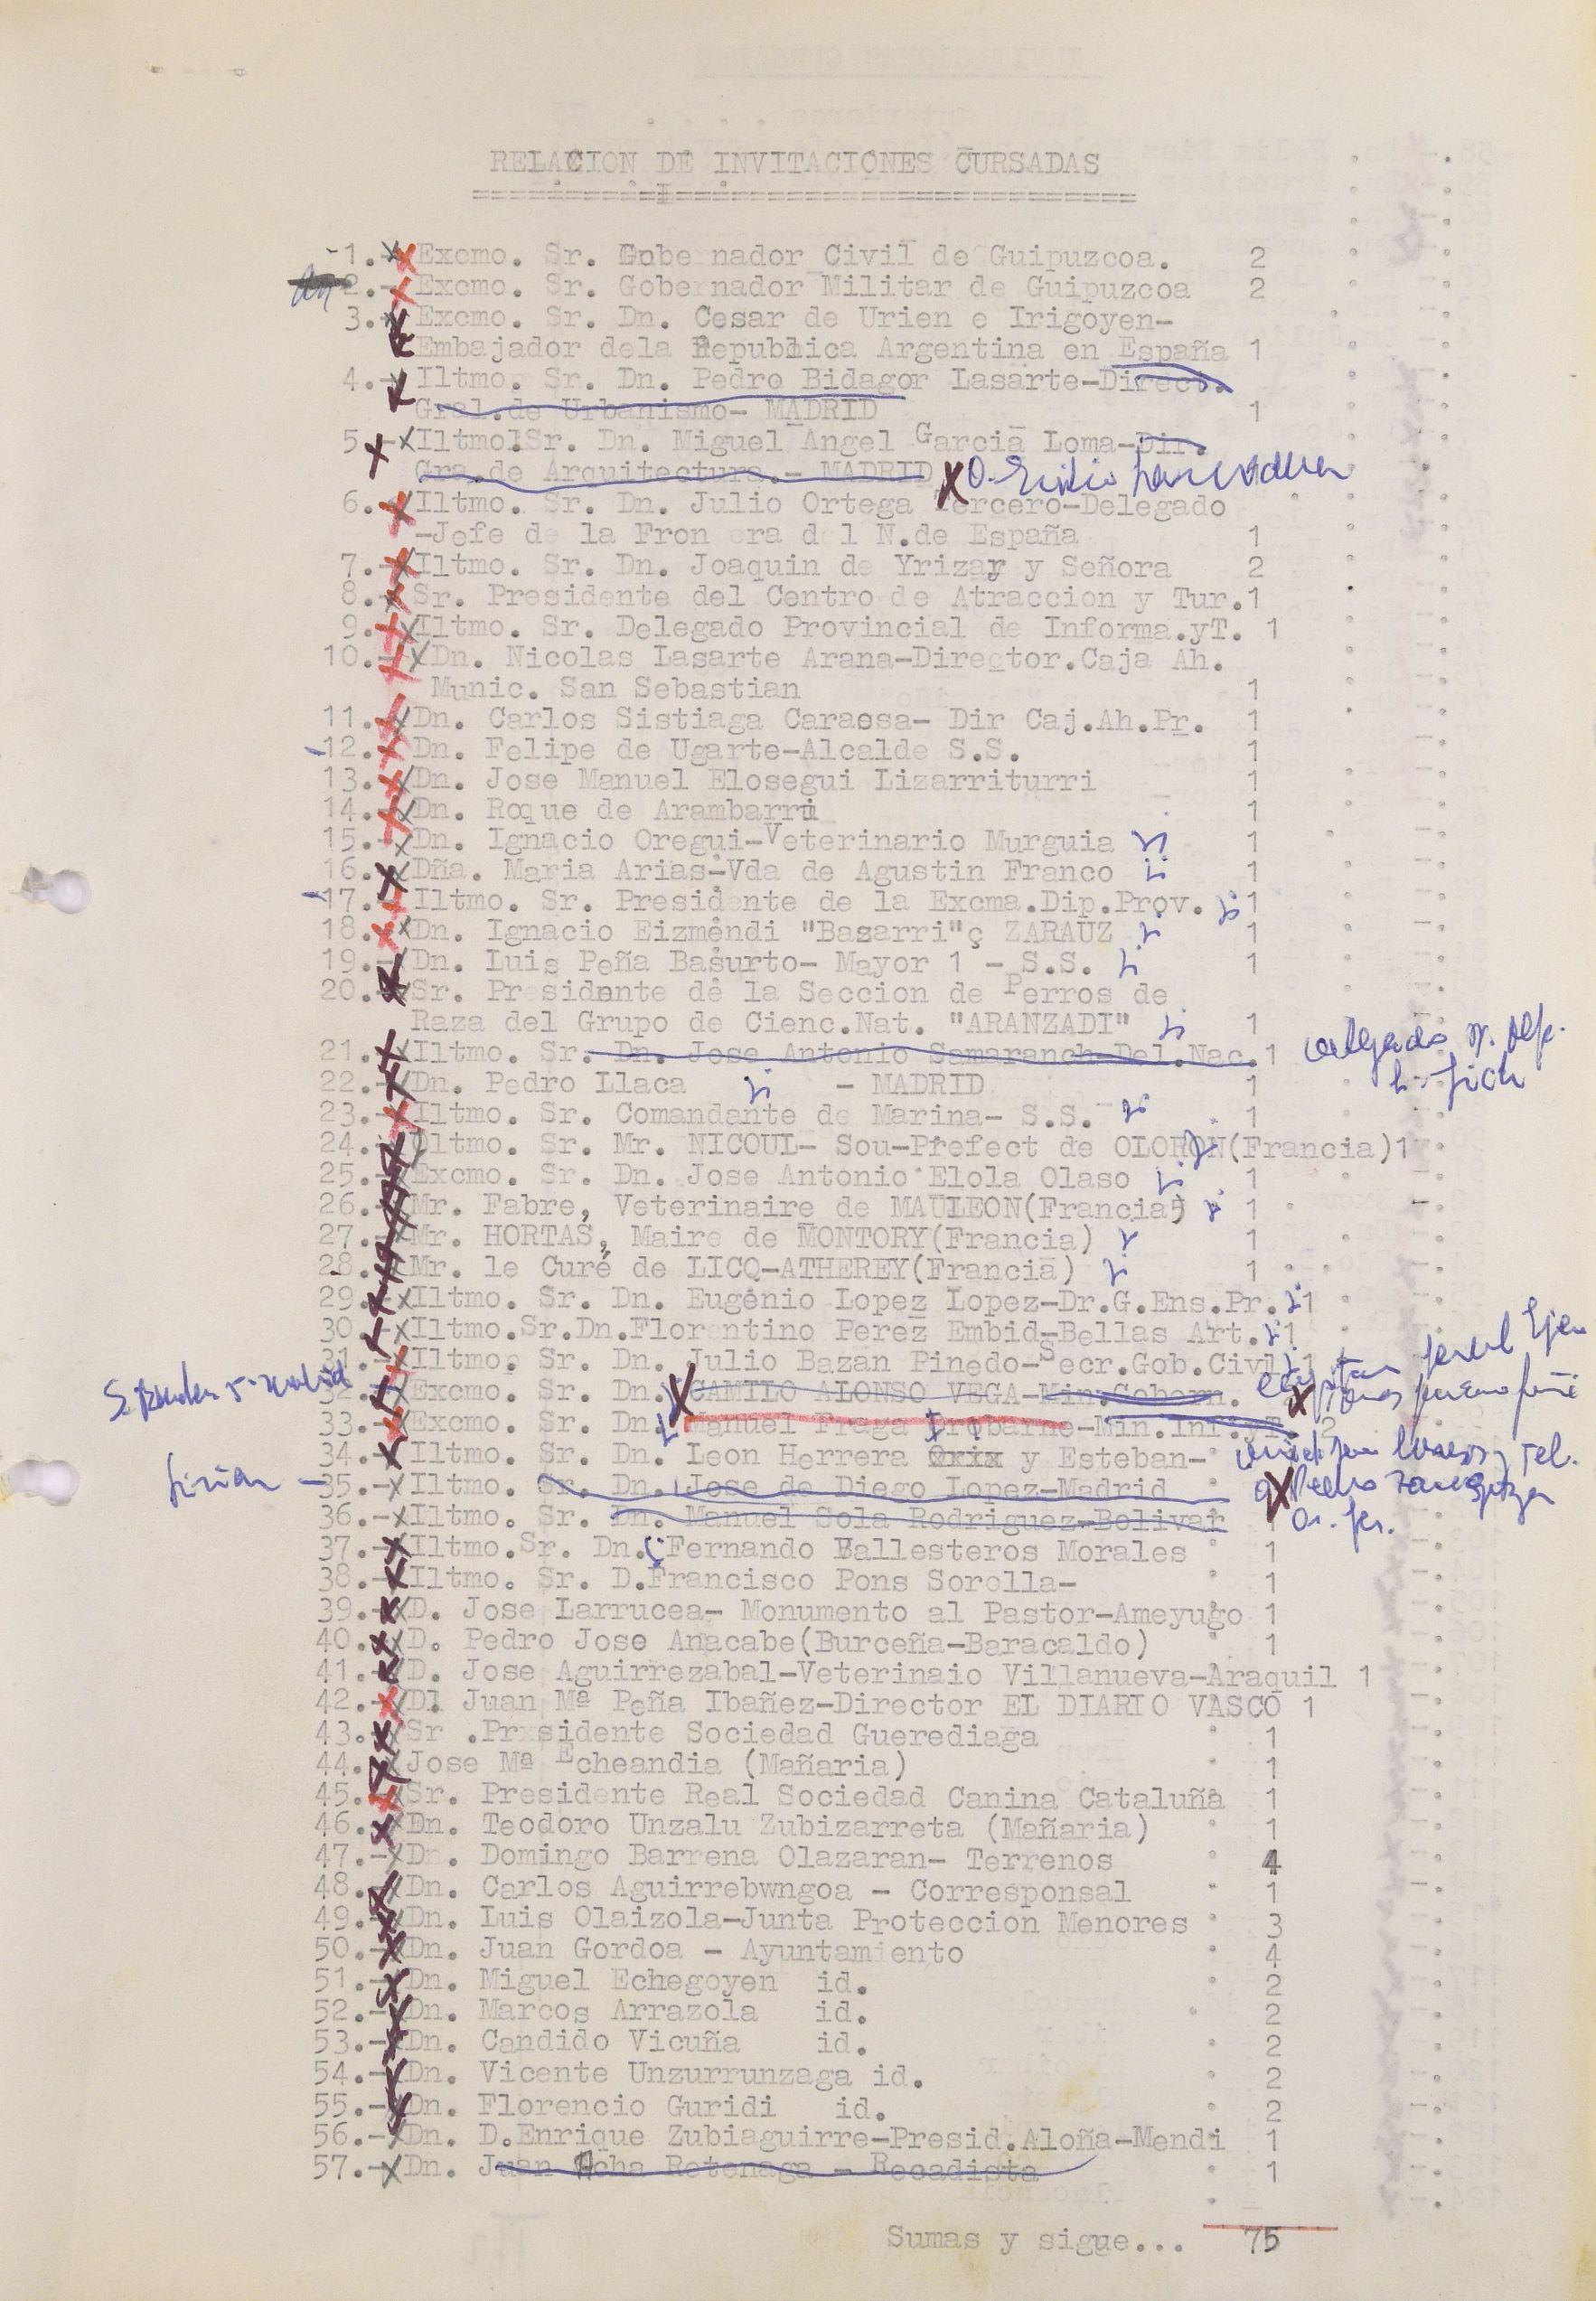 RELACION DE INVITACIONES CURSADAS
1.- Excmo. Sr. Gobernador Civil de Guipuzcoa. 2
2.- Excmo. Sr. Gobernador Militar de Guipuzcoa 2
3.- Excmo. Sr. Dn. Cesar de Urien e Irigoyen-
Embajador dela Republica Argentina en España 1
4.- Iltmo. Sr. Dn. Pedro Bidagor Lasarte-Direct.
Gral.de Urbanismo- MADRID 1
5.- Iltmo.Sr. Dn. Miguel Angel Garcia Loma-Dir.
Gra.de Arquitectura.- MADRID
6.- Iltmo. Sr. Dn. Julio Ortega Tercero-Delegado
-Jefe de la Fron era del N.de España 1
7.- Iltmo. Sr. Dn. Joaquin de Yrizar y Señora 2
8.- Sr. Presidente del Centro de Atraccion y Tur.1
9.- Iltmo. Sr. Delegado Provincial de Informa.yT. 1
10.- Dn. Nicolas Lasarte Arana-Director.Caja Ah.
Munic. San Sebastian 1
11.- Dn. Carlos Sistiaga Caraosa- Dir Caj.Ah.Pr. 1
12.- Dn. Felipe de Ugarte-Alcalde S.S. 1
13.- Dn. Jose Manuel Elosegui Lizarriturri 1
14.- Dn. Roque de Arambarru 1
15.- Dn. Ignacio Oregui-Veterinario Murguia 1
16.- Dña. Maria Arias-Vda de Agustin Franco 1
17.- Iltmo. Sr. Presidente de la Excma.Dip.Prov. 1
18.- Dn. Ignacio Eizmendi "Basarri"ç ZARAUZ 1
19.- Dn. Luis Peña Basurto- Mayor 1 - S.S. 1
20.- Sr. Presidnnte de la Seccion de Perros de
Raza del Grupo de Cienc.Nat. "ARANZADI" 1
21.- Iltmo. Sr. Dn. Jose Antonio Samaranch-Del.Nac.1
22.- Dn. Pedro Llaca - MADRID 1
23.- Iltmo. Sr. Comandante de Marina- S.S. 1
24.- Iltmo. Sr. Mr. NICOUL- Sou-Prefect de OLORON(Francia)1
25.- Excmo. Sr. Dn. Jose Antonio Elola Olaso 1
26.- Mr. Fabre, Veterinaire de MAULEON(Francia) 1
27.- Mr. HORTAS, Maire de MONTORY(Francia) 1
28.- Mr. le Curé de LICQ-ATHEREY(Francia) 1
29.- Iltmo. Sr. Dn. Eugenio Lopez Lopez-Dr.G.Ens.Pr. 1
30.- Iltmo.Sr.Dn.Florentino Perez Embid-Bellas Art. 1
31.- Iltmo. Sr. Dn. Julio Bazan Pinedo-Secr.Gob.Civil 1
32.- Excmo. Sr. Dn. CAMILO ALONSO VEGA-Min.Gobern.
33.- Excmo. Sr. Dn. Manuel Fraga Iribarne-Min.Inf.yT. 2
34.- Iltmo. Sr. Dn. Leon Herrera y Esteban-
35.- Iltmo. Sr. Dn. Jose de Diego Lopez-Madrid
36.- Iltmo. Sr. Dn. Manuel Sola Rodriguez-Bolivar 1
37.- Iltmo.Sr. Dn. Fernando Ballesteros Morales 1
38.- Iltmo. Sr. D.Francisco Pons Sorolla- 1
39.- D. Jose Larrucea- Monumento al Pastor-Ameyugo 1
40.- D. Pedro Jose Anacabe(Burceña-Baracaldo) 1
41.- D. Jose Aguirrezabal-Veterinaio Villanueva-Araquil 1
42.- Dl Juan Mª Peña Ibañez-Director EL DIARIO VASCO 1
43.- Sr .Prxsidente Sociedad Guerediaga 1
44.- Jose Mª Echeandia (Mañaria) 1
45.- Sr. Presidente Real Sociedad Canina Cataluña 1
46.- Dn. Teodoro Unzalu Zubizarreta (Mañaria) 1
47.- Dn. Domingo Barrena Olazaran- Terrenos 4
48.- Dn. Carlos Aguirrebwngoa - Corresponsal 1
49.- Dn. Luis Olaizola-Junta Proteccion Menores 3
50.- Dn. Juan Gordoa - Ayuntamiento 4
51.- Dn. Miguel Echegoyen id. 2
52.- Dn. Marcos Arrazola id. 2
53.- Dn. Candido Vicuña id. 2
54.- Dn. Vicente Unzurrunzaga id. 2
55.- Dn. Florencio Guridi id. 2
56.- Dn. D.Enrique Zubiaguirre-Presid.Aloña-Mendi 1
57.- Dn. Juan Acha Rotenaga - Recadista 1
Sumas y sigue... 75